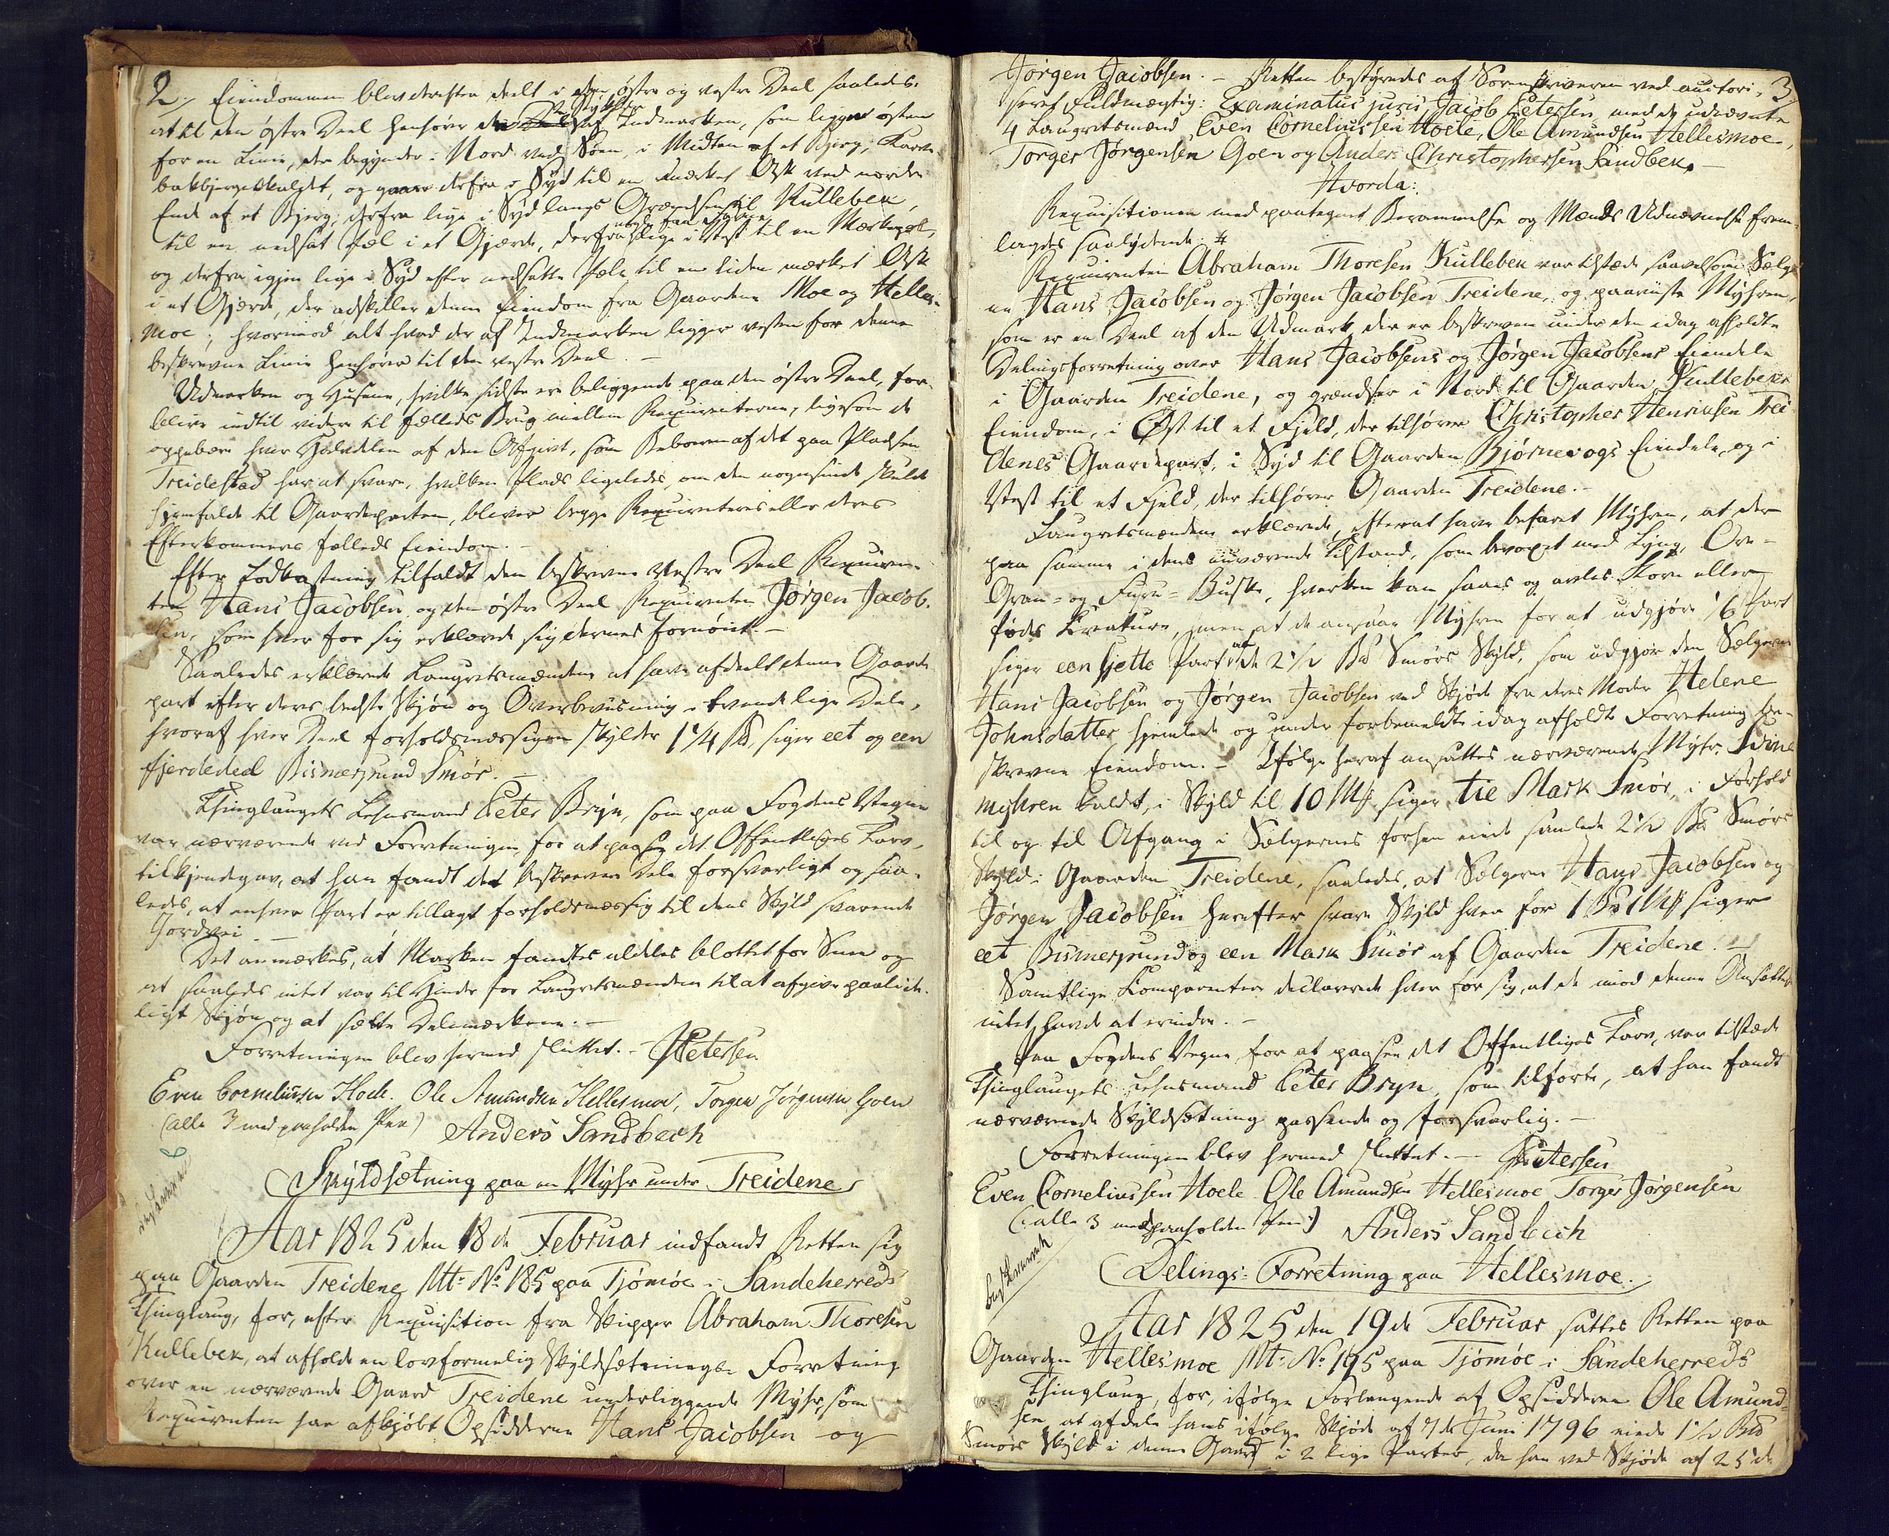 2.
Eiendommen blev derefter deelt i en østre og vestre Deel saaledes,
at til den østre Deel henhører det Stykke af Indmarken, som ligger østen
for en Linie, der begynder i Nord ved Søen, i Midten af et Bjerg,
og gaaer derfra i Syd til en mærket Ask ved nordre
Ende af et Bjerg, derfra lige i Syd langs Grændsen til Kullebek,
til en nedsat Pæl i et Gjerde, derfra lige i Vest til en Mærkepæl,
og derfra igjen lige i Syd efter nedsatte Pæle til en liden mærket Ask
i et Gjerde, der adskiller denne Eiendom fra Gaardene Moe og Helles-
moe; hvorimod alt hvad der af Indmarken ligger vesten for denne
beskrevne Linie henhører til den vestre Deel. —
Udmarken og Husene, hvilke sidste ere beliggende paa den østre Deel, for-
blive indtil videre til fælleds Brug mellem Requirenterne, ligesom de
oppebære hver Halvdelen af den Afgivt, som Beboeren af det paa Pladsen
Treidestad har at svare, hvilken Plads ligeledes, om den nogensinde skulde
hjemfalde til Gaardeparten, bliver begge Requirenteres eller deres
Efterkommeres fælleds Eiendom. —
Efter Lodkastning tilfaldt den beskrevne vestre Deel Requiren-
ten Hans Jacobsen og den østre Deel Requirenten Jørgen Jacob-
sen, som hver for sig erklærede sig dermed fornøiet. —
Saaledes erklærede Laugretsmændene at have afdeelt denne Gaarde-
part efter deres bedste Skjøn og Overbeviisning i tvende lige Dele,
hvoraf hver Deel forholdsmæssigen skylder 1 1/4 Bp, siger eet og een
fjerdedeel Bismerpund Smør. —
Thinglaugets Lehnsmand Peter Bryn, som paa Fogdens Vegne
var nærværende ved Forretningen, for at paasee det Offentliges Tarv,
tilkjendegav, at han fandt de beskrevne Dele forsvarligt og saa-
ledes, at enhver Part er tillagt forholdsmæssig til dens Skyld svarende
Jordvei. —
Det anmærkes, at Marken fandtes aldeles blottet for Snee og
at saaledes intet var til Hinder for Laugretsmændene til at afgive paalide-
ligt Skjøn og at sætte Delemærkerne. —
Forretningen blev hermed sluttet. — JPetersen
Even Corneliussen Hoele. Ole Amundsen Hellesmoe, Torger Jørgensen Goen
(alle 3 med paaholden Pen) Anders Sandbech
Skyldsætning paa en Myhr under Treidene
Aar 1825 den 18de Februar indfandt Retten sig
paa Gaarden Treidene Mt: No 185 paa Tjømøe i Sandeherreds
Thinglaug, for, efter Requisition fra Skipper Abraham Thoresen
Kullebek, at afholde en lovformelig Skyldsætnings-Forretning
over en nærværende Gaard Treidene underliggende Myhr, som
Requirenten har afkjøbt Opsidderne Hans Jacobsen og
3
Jørgen Jacobsen. — Retten bestyredes af Sorenskriveren ved autori-
seret Fuldmægtig: Examinatus juris Jacob Petersen med de udnævnte
4 Laugretsmænd Even Corneliussen Hoele, Ole Amundsen Hellesmoe,
Torger Jørgensen Goen og Anders Christophersen Sandbek. —
Hvorda:
Requisitionen med paategnet Berammelse og Mænds Udnævnelse frem-
lagdes saalydende: #
Requirenten Abraham Thoresen Kullebek var tilstæde saavelsom Sælger-
ne Hans Jacobsen og Jørgen Jacobsen Treidene, og paaviiste Myhren,
som er en Deel af den Udmark, der er beskreven under den idag afholdte
Delingsforretning over Hans Jacobsens og Jørgen Jacobsens Eiendele
i Gaarden Treidene, og grændser i Nord til Gaarden Kullebeks
Eiendom, i Øst til et Fjeld, der tilhører Christopher Henriksen Trei-
denes Gaardepart, i Syd til Gaarden Bjørnevogs Eiendele, og i
Vest til et Fjeld, der tilhører Gaarden Treidene. —
Laugretsmændene erklærede, efterat have befaret Myhren, at der
paa samme i dens nuværende Tilstand, som bevoxet med Lyng, Ore-
Gran- og Furu-Buske, hverken kan saaes og avles Korn eller
fødes Kreature, men at de ansaae Myhren for at udgjøre 1/6 Part
siger een sjette Part af de 2 1/2 Bp Smørs Skyld, som udgjør den Sælgerne
Hans Jacobsen og Jørgen Jacobsen ved Skjøde fra deres Moder Helene
Johnsdatter hjemlede og under forbemeldte idag afholdte Forretning be-
skrevne Eiendom. — Ifølge heraf ansattes nærværende Myhr,
myhren kaldet, i Skyld til 10 Mk siger tie Mark Smør, i Forhold
til og til Afgang i Sælgernes forhen eiede samlede 2 1/2 Bp Smørs
Skyld i Gaarden Treidene, saaledes, at Sælgerne Hans Jacobsen og
Jørgen Jacobsen herefter svare Skyld hver for 1 Bp 1 Mk siger
eet Bismerpund og een Mark Smør af Gaarden Treidene. —
Samtlige Comparenter declarerede hver for sig, at de imod denne Ansættelse
intet havde at erindre. —
Paa Fogdens Vegne for at paasee det Offentliges Tarv, var tilstæde
Thinglaugets Lehnsmand Peter Bryn, som tilførte, at han fandt
nærværende Skyldsætning passende og forsvarlig. —
Forretningen blev hermed sluttet. — JPetersen
Even Corneliussen Hoele Ole Amundsen Hellesmoe Torger Jørgensen
(: alle 3 med paaholden Pen :) Anders Sandbech
Delings-Forretning paa Hellesmoe.
Aar 1825 den 19de Februar sattes Retten paa
Gaarden Hellesmoe Mt: No 195 paa Tjømøe i Sandeherreds
Thinglaug, for, ifølge Forlangende af Opsidderen Ole Amund-
sen, at afdele hans ifølge Skjøde af 7de Juni 1796 eiede 1 1/2 Bp
Smørs Skyld i denne Gaard i 2 lige Parter, da han ved Skjøde af 25de